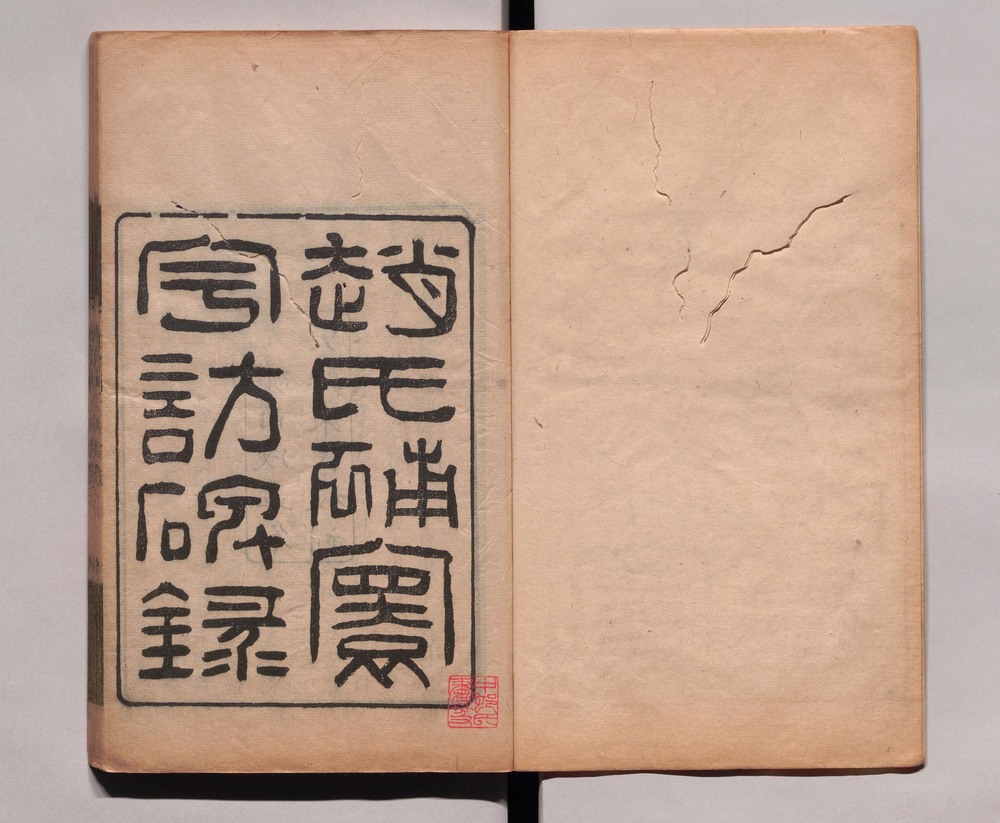 趙氏補寰
宇訪碑錄